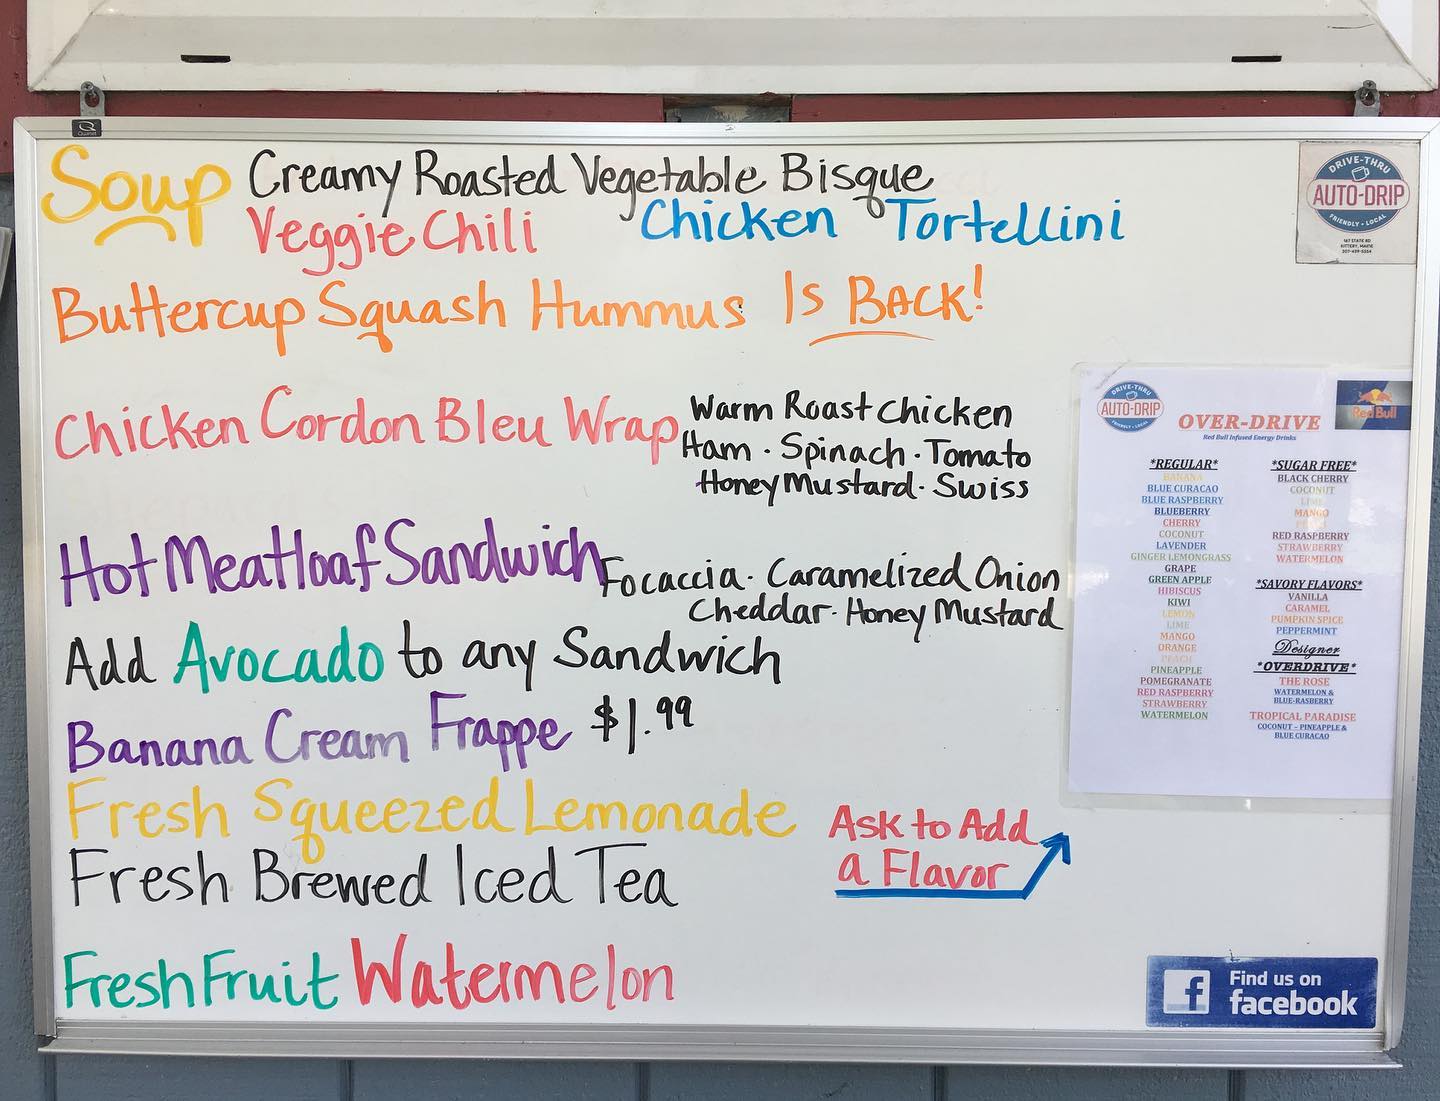 Quartet
Soup Creamy Roasted Vegetable Bisque
Veggie Chili Chicken Tortellini
Buttercup Squash Hummus Is BACK!
Chicken Cordon Bleu Wrap
Warm Roast Chicken
Ham · Spinach · Tomato
Honey Mustard · Swiss
Hot Meatloaf Sandwich
Focaccia · Caramelized Onion
Cheddar · Honey Mustard
Add Avocado to any Sandwich
Banana Cream Frappe $1.99
Fresh Squeezed Lemonade
Fresh Brewed Iced Tea
Ask to Add
a Flavor
Fresh Fruit Watermelon
DRIVE-THRU
AUTO-DRIP
FRIENDLY • LOCAL
167 STATE RD
KITTERY, MAINE
207-439-5554
DRIVE-THRU
AUTO-DRIP
FRIENDLY • LOCAL
Red Bull
OVER-DRIVE
Red Bull Infused Energy Drinks
*REGULAR*
BANANA
BLUE CURACAO
BLUE RASPBERRY
BLUEBERRY
CHERRY
COCONUT
LAVENDER
GINGER LEMONGRASS
GRAPE
GREEN APPLE
HIBISCUS
KIWI
LEMON
LIME
MANGO
ORANGE
PEACH
PINEAPPLE
POMEGRANATE
RED RASPBERRY
STRAWBERRY
WATERMELON
*SUGAR FREE*
BLACK CHERRY
COCONUT
LIME
MANGO
PEACH
RED RASPBERRY
STRAWBERRY
WATERMELON
*SAVORY FLAVORS*
VANILLA
CARAMEL
PUMPKIN SPICE
PEPPERMINT
Designer
*OVERDRIVE*
THE ROSE
WATERMELON &
BLUE-RASBERRY
TROPICAL PARADISE
COCONUT – PINEAPPLE &
BLUE CURACAO
Find us on
facebook